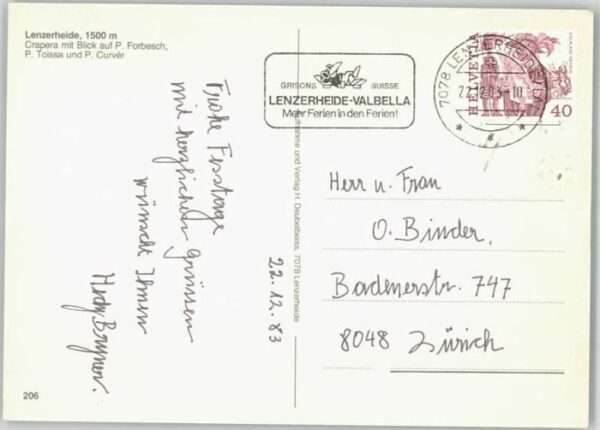 Lenzerheide, 1500 m
Crapera mit Blick auf P. Forbesch,
P. Toissa und P. Curvér
GRISONS SUISSE
LENZERHEIDE-VALBELLA
Mehr Ferien in den Ferien!
7078 LENZERHEIDE/LAI
22.12.83-10
HELVETIA
40
Frohe Festtage
mit herzlichen Grüssen
wünscht Ihnen
Hedy Bryner.
22.12.83
Aufnahme und Verlag H. Deubelbeiss, 7078 Lenzerheide
Herr u. Frau
O. Binder,
Badenerstr. 747
8048 Zürich
206